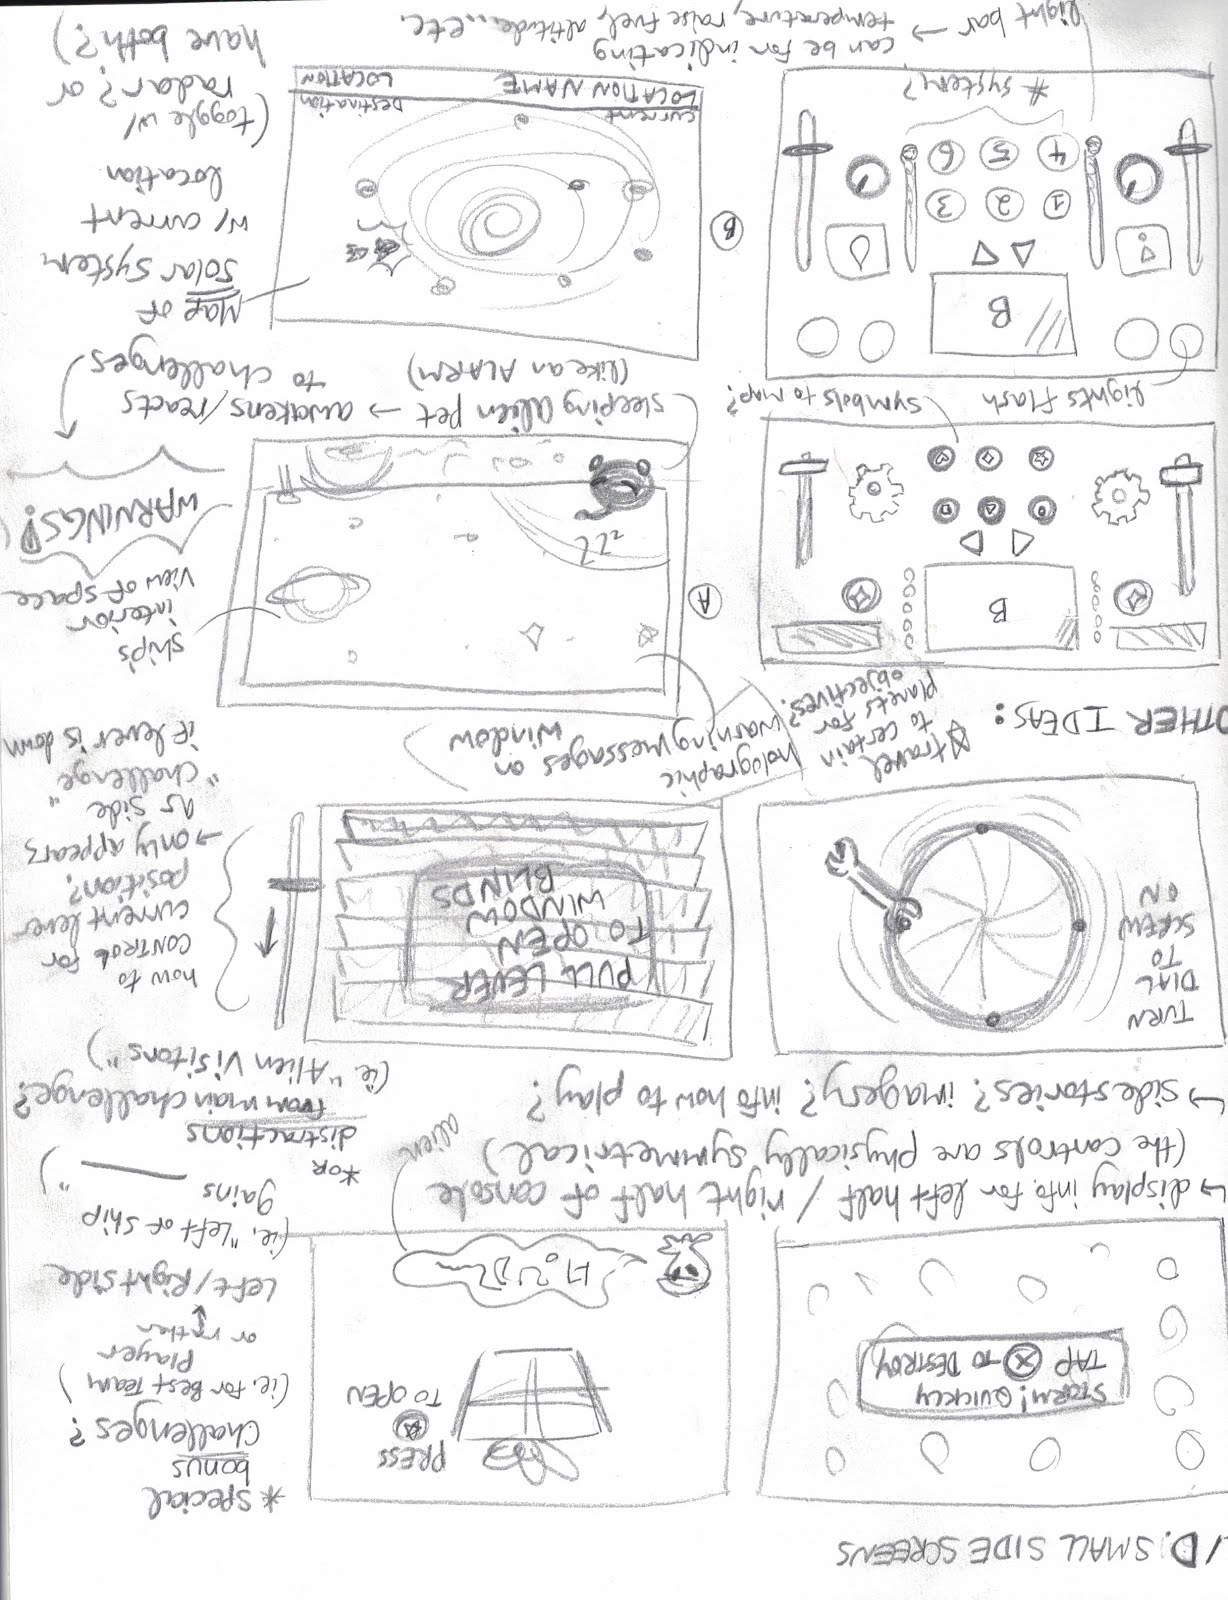 D. SMALL SIDE SCREENS
* special
bonus
challenges?
(ie. for Best Team
Player)
or rather
Left/Right side
(ie. "Left of ship
gains ——")
PRESS
TO OPEN
STORM! QUICKLY
TAP X TO DESTROY
alien
↳ display info for left half / right half of console
(the controls are physically symmetrical)
↳ side stories? imagery? info how to play?
* or
distractions
from main challenge?
(ie. "Alien Visitors")
TURN
DIAL
TO
SCREW
ON
PULL LEVER
TO OPEN
WINDOW
BLINDS
how to
CONTROL for
current lever
position?
→ only appears
as side
"challenge"
if lever is down
OTHER IDEAS:
☆ travel
to certain
planets for
objectives?
holographic
warning messages on
window
B
A
ZZZ
ship's
interior
view of space
WARNINGS!
lights flash
symbols to map?
sleeping alien pet → awakens/reacts
(like an ALARM)
to challenges
B
B
1 2 3
4 5 6
# system?
Map of
Solar System
w/ current
location
(toggle w/
radar? or
have both?)
current
LOCATION NAME
Destination
LOCATION
light bar → can be for indicating
temperature, raise fuel, altitude... etc.